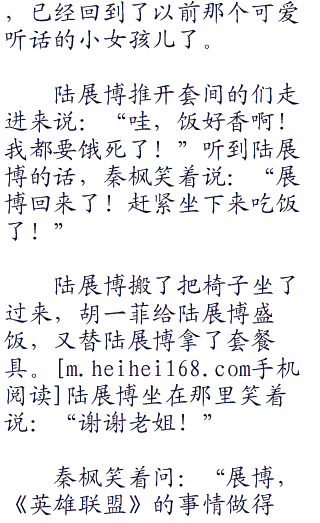 ，已经回到了以前那个可爱
听话的小女孩儿了。
陆展博推开套间的们走
进来说：“哇，饭好香啊！
我都要饿死了！”听到陆展
博的话，秦枫笑着说：“展
博回来了！赶紧坐下来吃饭
了！”
陆展博搬了把椅子坐了
过来，胡一菲给陆展博盛
饭，又替陆展博拿了套餐
具。[m.heihei168.com手机
阅读]陆展博坐在那里笑着
说：“谢谢老姐！”
秦枫笑着问：“展博，
《英雄联盟》的事情做得